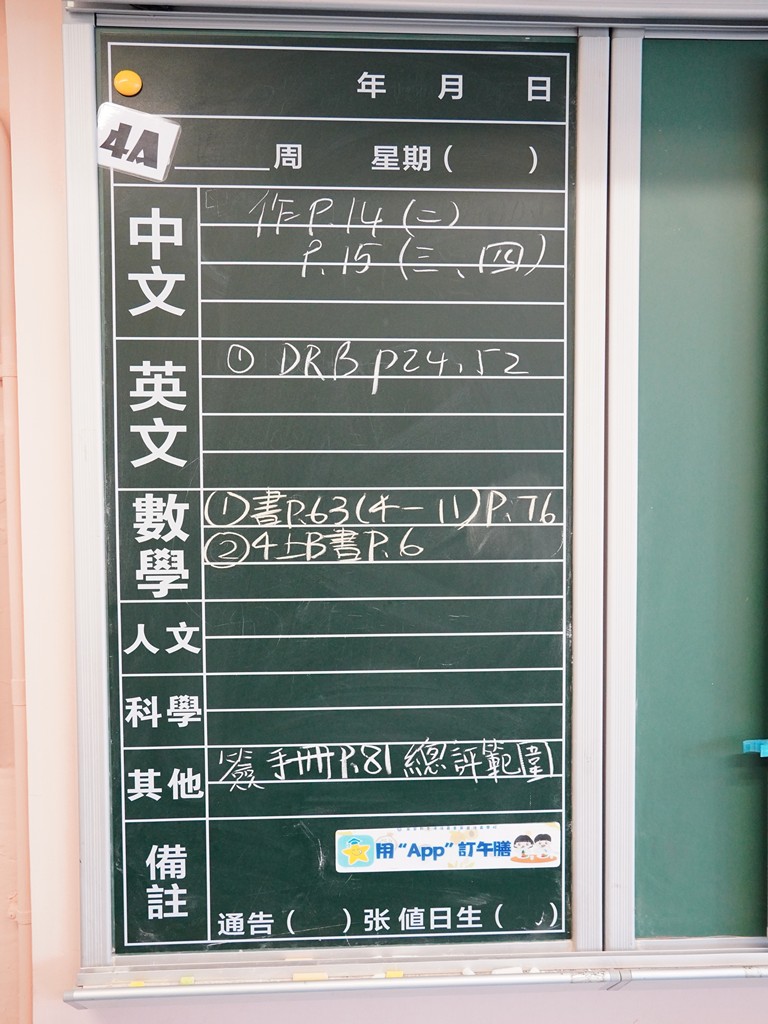 年 月 日
4A
____周 星期( )
中文
作P.14(二)
P.15(三、四)
英文
① DRB p24,52
數學
①書P.63(4-11)P.76
②4上B書P.6
人文
科學
其他
手冊P.81 總評範圍
備註
用“App”訂午膳
通告( )张 值日生( )